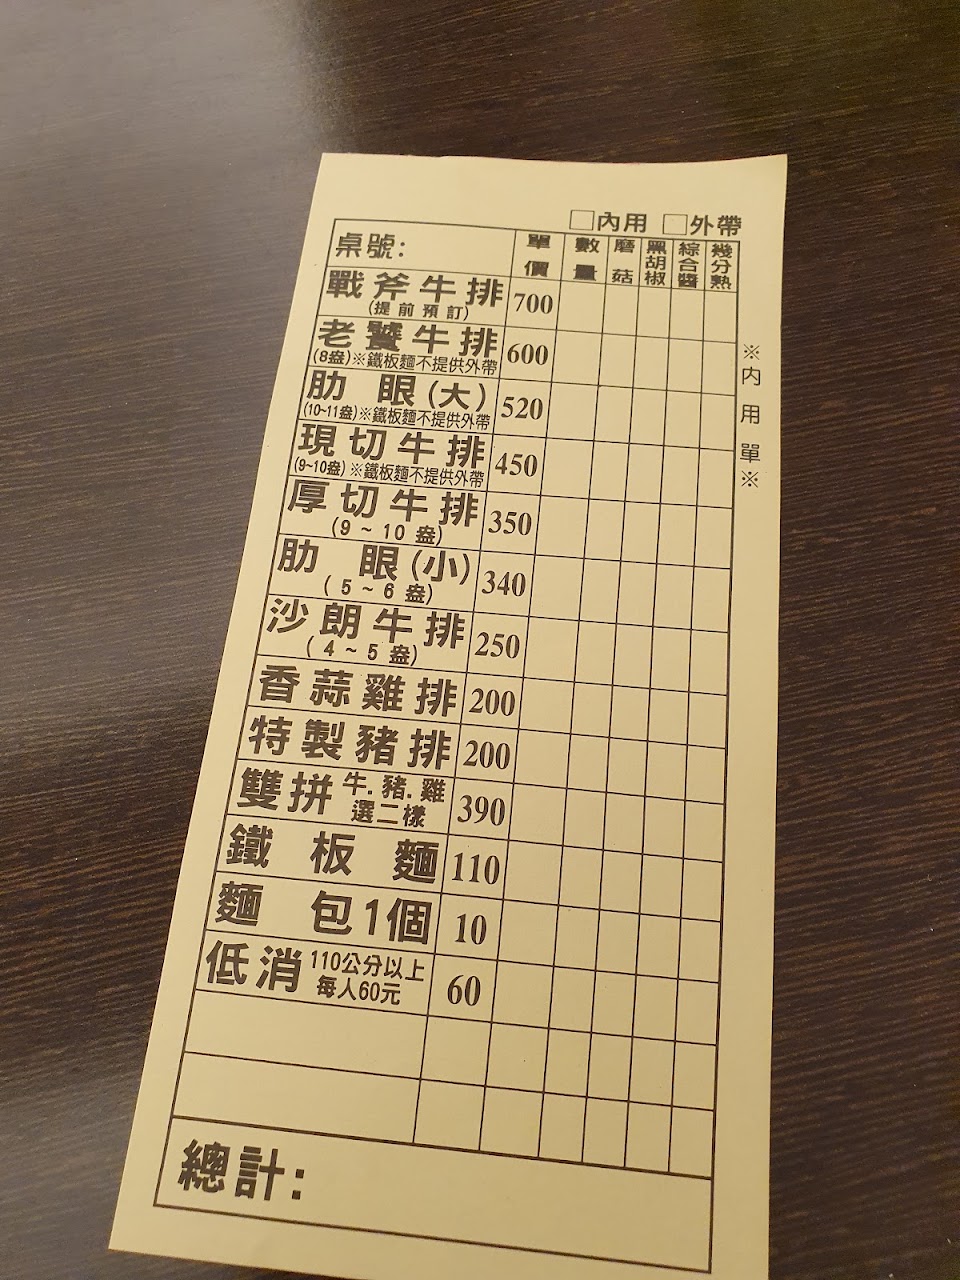 □內用 □外帶
桌號: 單價 數量 磨菇 黑胡椒 綜合醬 幾分熟
戰斧牛排 700
(提前預訂)
老饕牛排 600
(8盎)※鐵板麵不提供外帶
肋眼(大) 520
(10~11盎)※鐵板麵不提供外帶
現切牛排 450
(9~10盎)※鐵板麵不提供外帶
厚切牛排 350
(9~10盎)
肋眼(小) 340
(5~6盎)
沙朗牛排 250
(4~5盎)
香蒜雞排 200
特製豬排 200
雙拼 牛.豬.雞 390
選二樣
鐵板麵 110
麵包1個 10
低消 110公分以上 60
每人60元
總計:
※內用單※